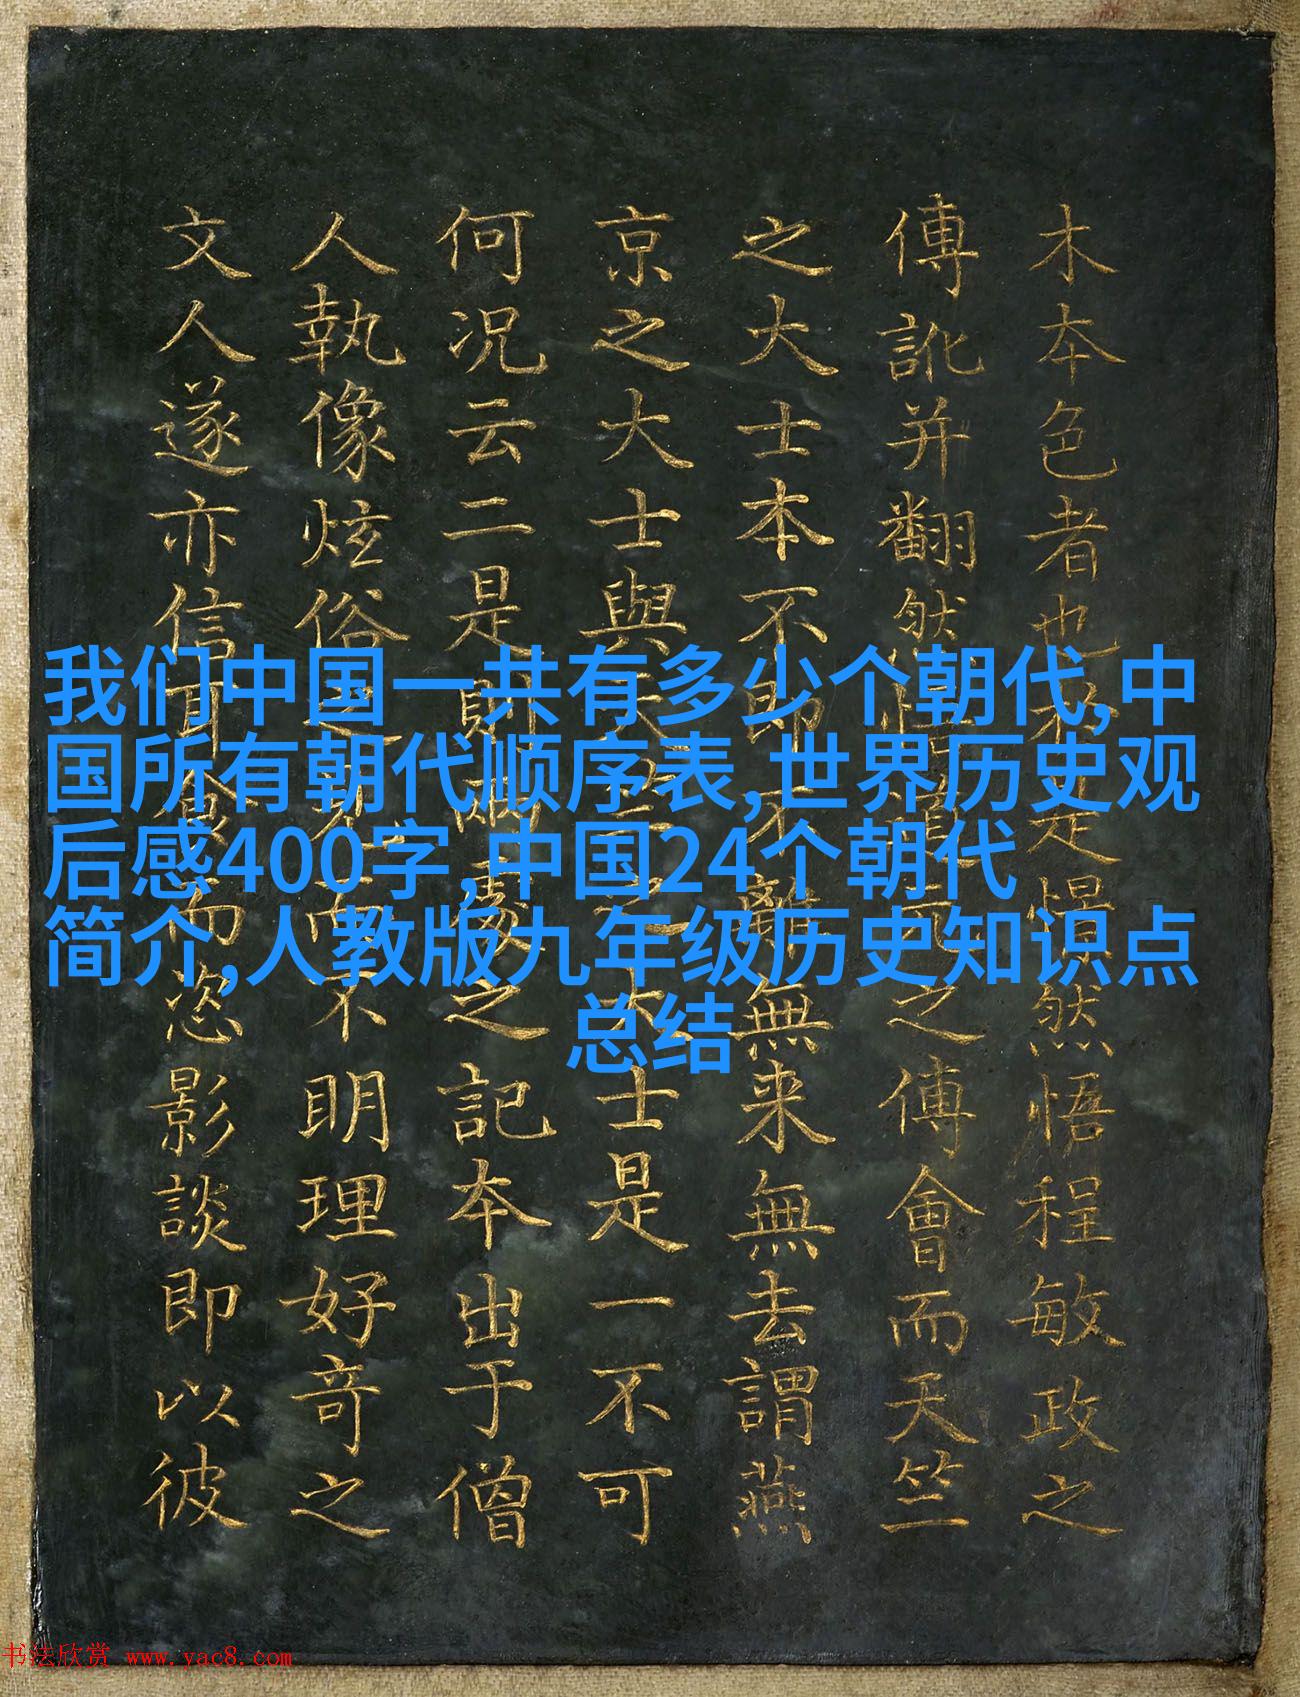 木本色者也是惺然悟程敏政之
傳訛并翻然之傅會而天竺
之大士本不即不離無来無去謂燕
京之大士與大士是一不可
何况云二是則之記本出于僧
人執像炫俗之而不明理好奇之
文人遂亦信耳而恣影談即以彼
我们中国一共有多少个朝代,中
国所有朝代顺序表,世界历史观
后感400字,中国24个朝代
简介,人教版九年级历史知识点
总结
书法欣赏 www.yac8.com